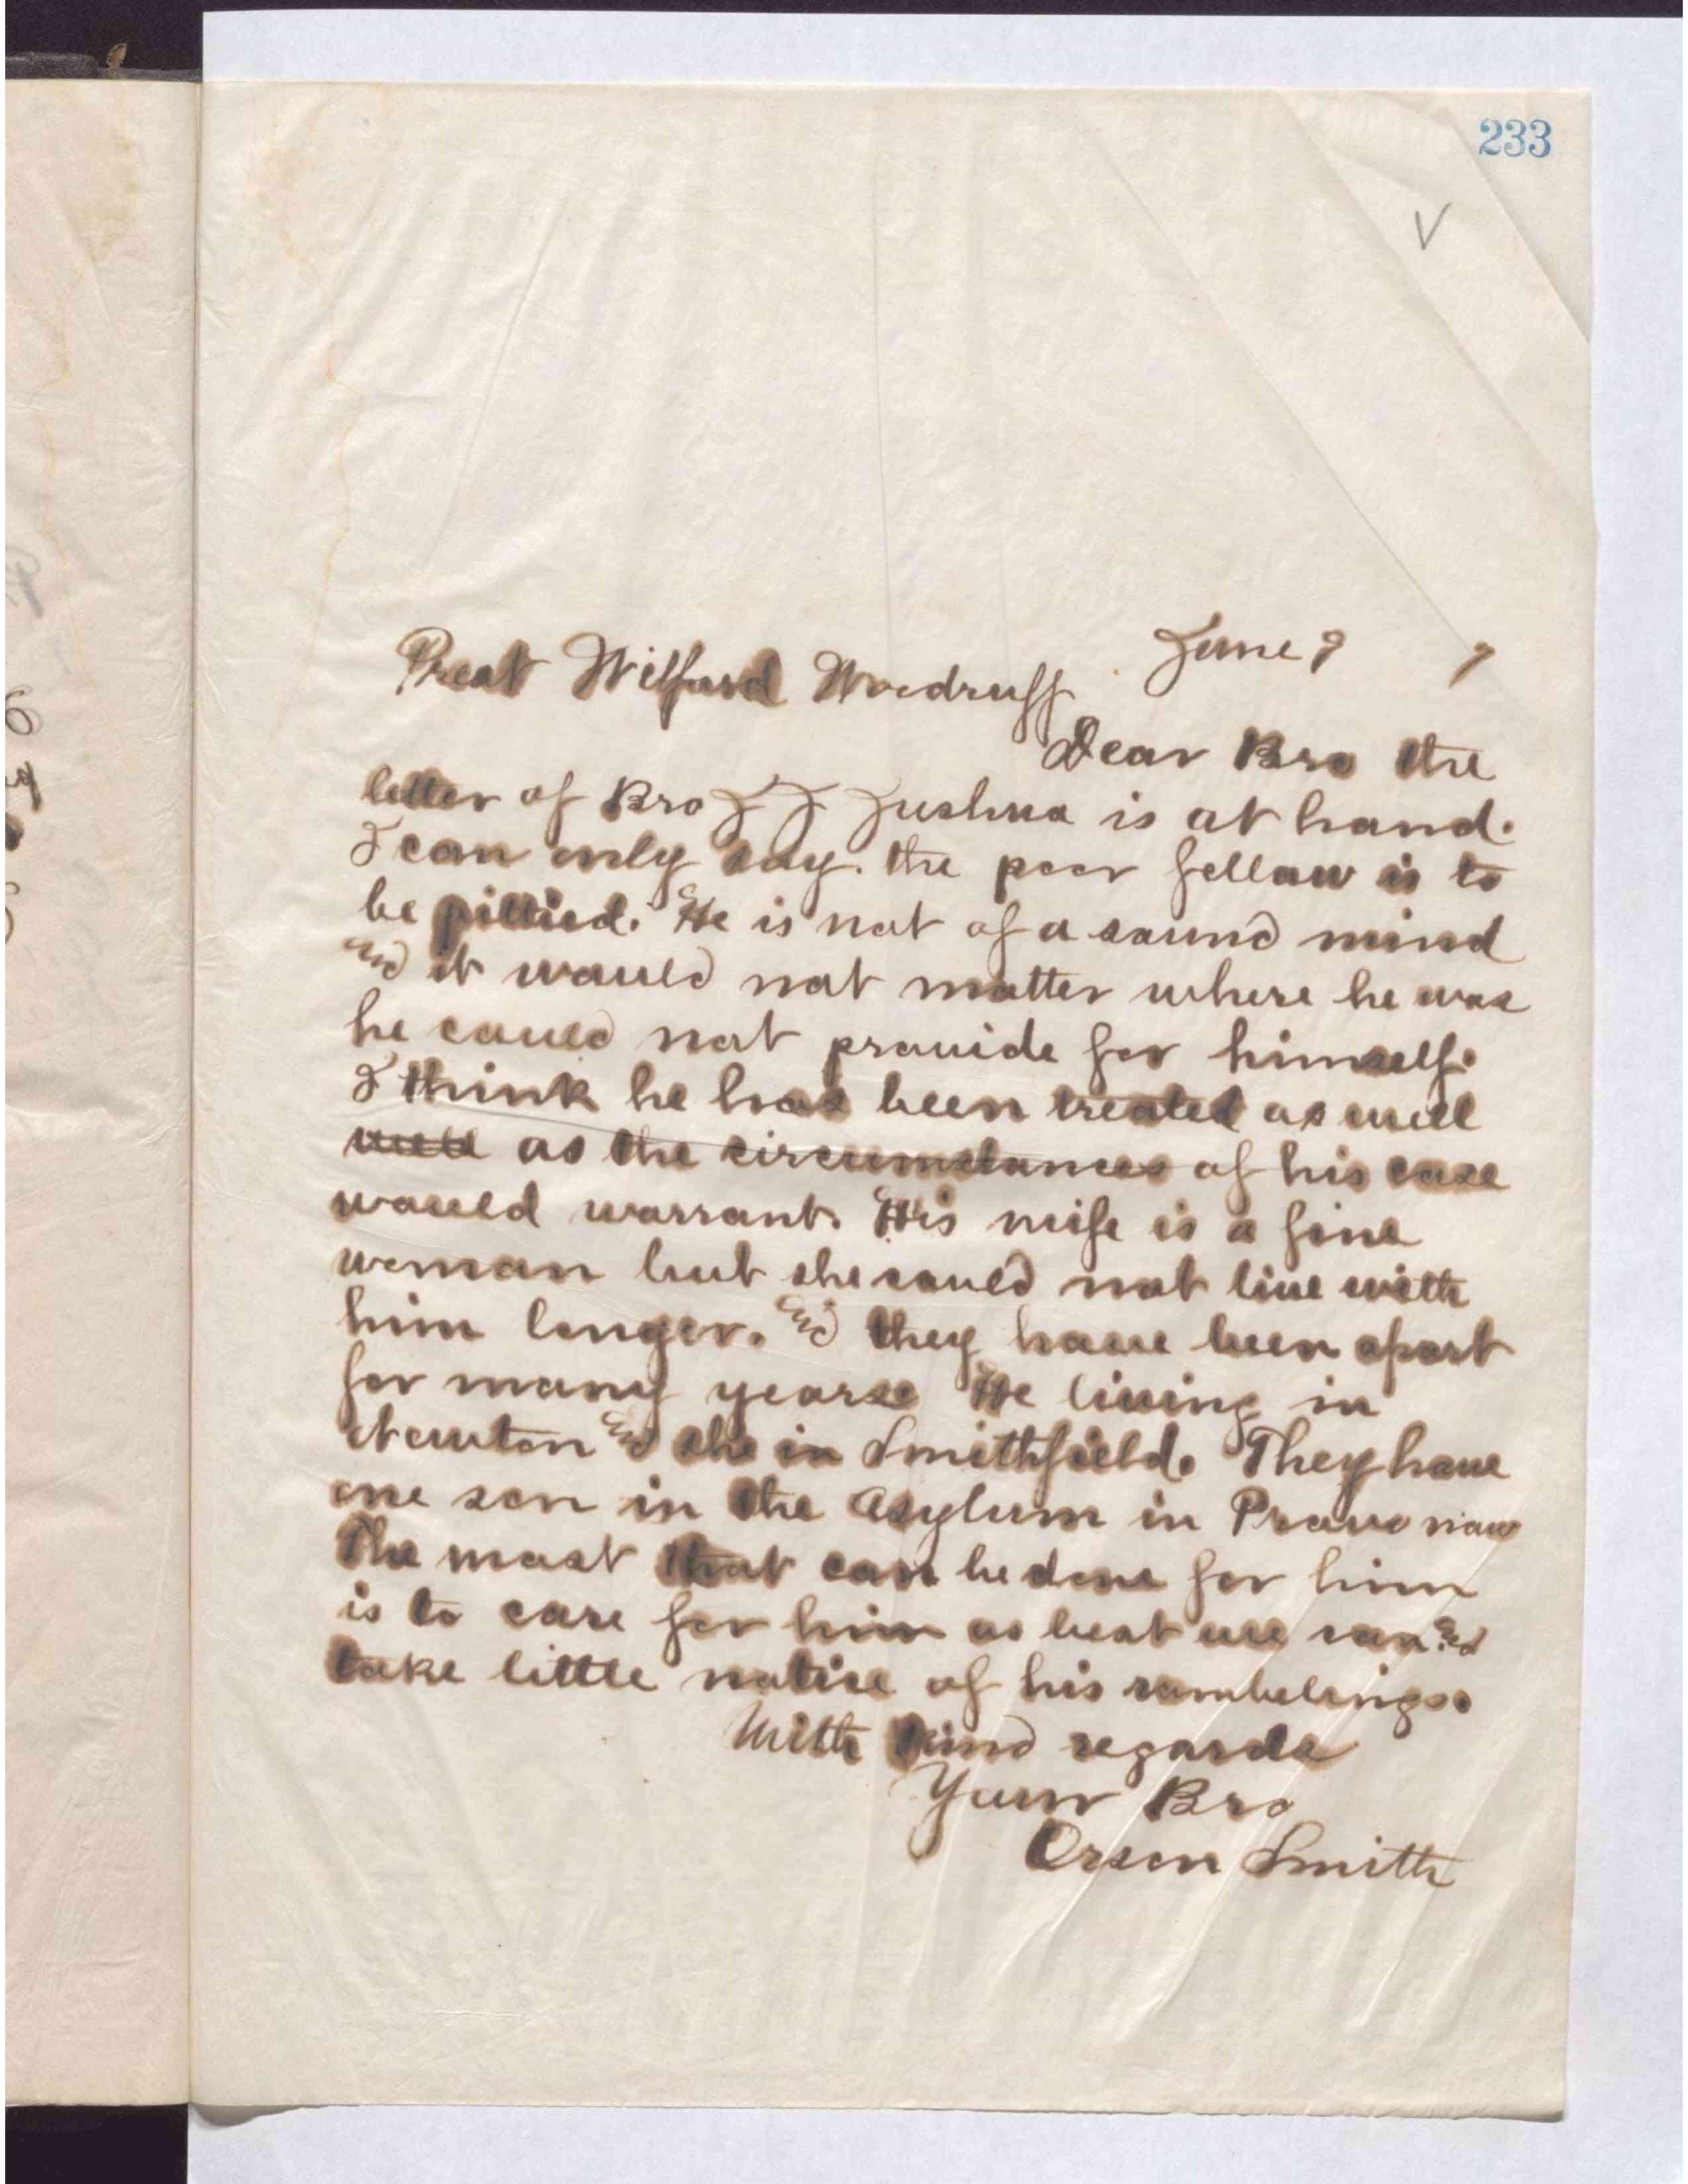 233
V
June 9 7
Prest Wilford Woodruff
Dear Bro the
letter of Bro J J Jushua is at hand.
I can only say. the poor fellow is to
be pittied. He is not of a sound mind
and it would not matter where he was
he could not provide for himself.
I think he has been treated as well
well as the circumstances of his case
would warrant. His wife is a fine
woman but she could not live with
him longer. and they have been apart
for many years. He living in
Newton and she in Smithfield. They have
one son in the Asylum in Provo now
The most that can be done for him
is to care for him as best we can and
take little notice of his rambelings.
With kind regards
Your Bro
Orson Smith